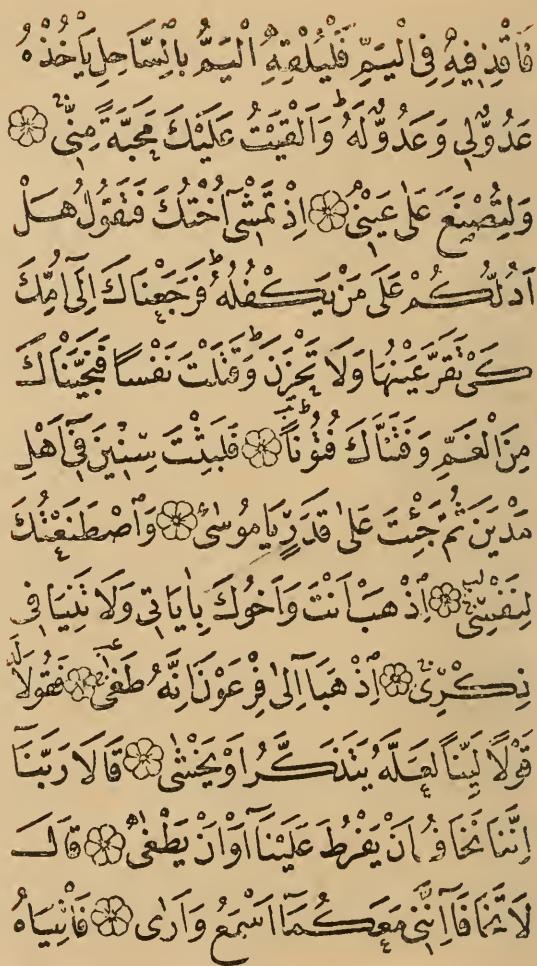 فَاقْذِفِيهِ فِى الْيَمِّ فَلْيُلْقِهِ الْيَمُّ بِالسَّاحِلِ يَأْخُذْهُ
عَدُوٌّلِى وَعَدُوٌّلَهُ ط وَاَلْقَيْتُ عَلَيْكَ مَحَبَّةً مِنِّى ۞
وَلِتُصْنَعَ عَلٰى عَيْنِى ۞ اِذْ تَمْشِٓى اُخْتُكَ فَتَقُولُ هَلْ
اَدُلُّكُمْ عَلٰى مَنْ يَكْفُلُهُ ط فَرَجَعْنَاكَ اِلٰٓى اُمِّكَ
كَىْ تَقَرَّ عَيْنُهَا وَلَا تَحْزَنَ ط وَقَتَلْتَ نَفْسًا فَنَجَّيْنَاكَ
مِنَ الْغَمِّ وَفَتَنَّاكَ فُتُونًا ۞ فَلَبِثْتَ سِنِينَ فِٓى اَهْلِ
مَدْيَنَ ثُمَّ جِئْتَ عَلٰى قَدَرٍ يَا مُوسٰى ۞ وَاصْطَنَعْتُكَ
لِنَفْسِى ۞ اِذْهَبْ اَنْتَ وَاَخُوكَ بِاٰيَاتِى وَلَا تَنِيَا فِى
ذِكْرِى ۞ اِذْهَبَٓا اِلٰى فِرْعَوْنَ اِنَّهُ طَغٰى ۞ فَقُولَا لَهُ
قَوْلًا لَيِّنًا لَعَلَّهُ يَتَذَكَّرُ اَوْ يَخْشٰى ۞ قَالَا رَبَّنَٓا
اِنَّنَا نَخَافُ اَنْ يَفْرُطَ عَلَيْنَٓا اَوْ اَنْ يَطْغٰى ۞ قَالَ
لَا تَخَافَٓا اِنَّنِى مَعَكُمَٓا اَسْمَعُ وَاَرٰى ۞ فَأْتِيَاهُ